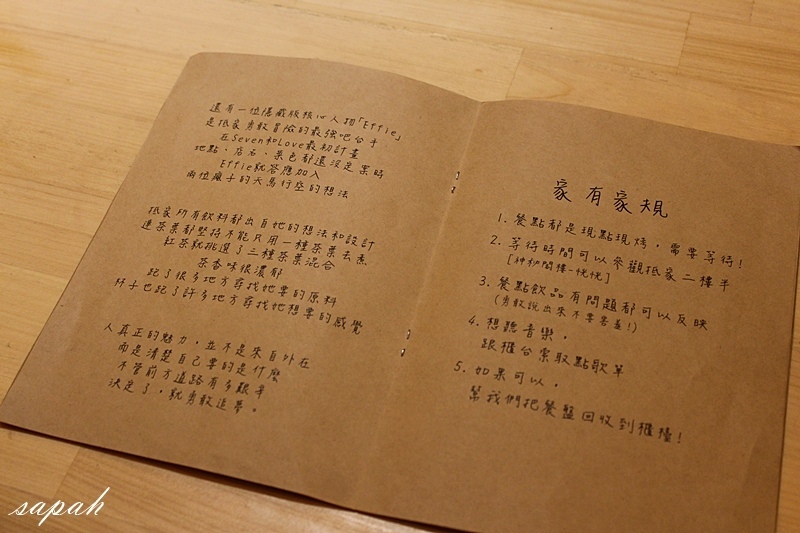 還有一位隱藏版核心人物「Effie」
是抵家勇敢冒險的最強吧台手
在Seven和Love最初計畫
地點、店名、菜色都還沒定案時
Effie就答應加入
兩位瘋子的天馬行空的想法
抵家所有飲料都出自她的想法和設計
連茶葉都堅持不能只用一種茶葉去煮
紅茶就挑選了三種茶葉混合
茶香味很濃郁
跑了很多地方尋找她要的原料
杯子也跑了許多地方尋找她想要的感覺
人真正的魅力，並不是來自外在
而是清楚自己要的是什麼
不管前方道路有多艱辛
決定了，就勇敢追夢。
家有家規
1. 餐點都是現點現烤，需要等待!
2. 等待時間可以參觀抵家二樓半
[神秘閣樓-恍恍]
3. 餐點飲品有問題都可以反映
(勇敢說出來不要害羞!)
4. 想聽音樂，
跟櫃台索取點歌單
5. 如果可以，
幫我們把餐盤回收到櫃檯!
sapah